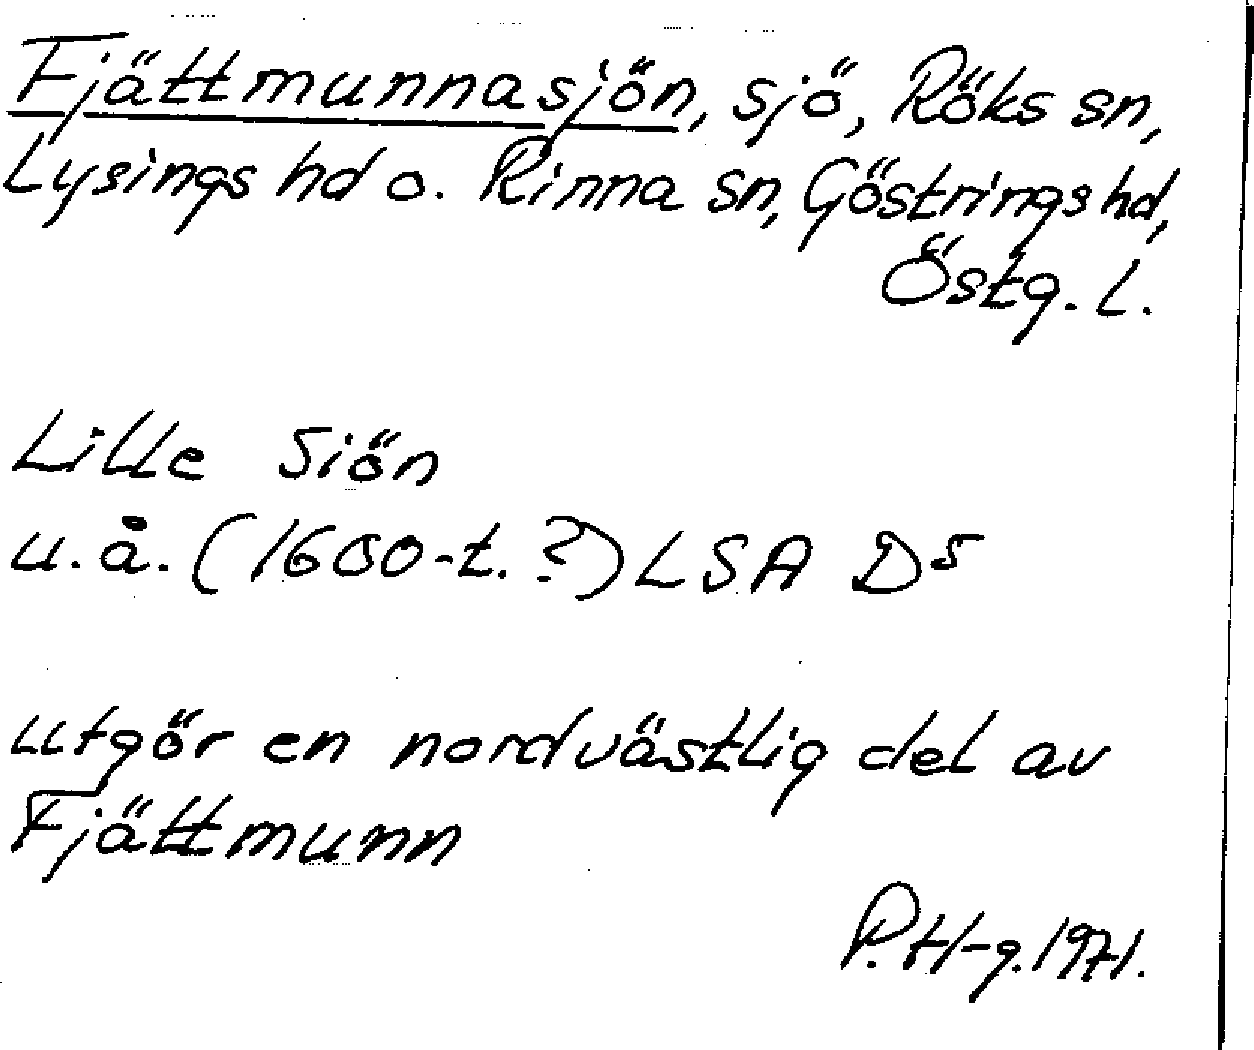 Fjättmunnasjön, sjö, Röks sn,
Lysings hd o. Rinna sn, Göstrings hd,
Östg. l.
Lille Siön
u.å. (1600-t. ?) LSA D5
utgör en nordvästlig del av
Fjättmunn
P. H-g. 1971.